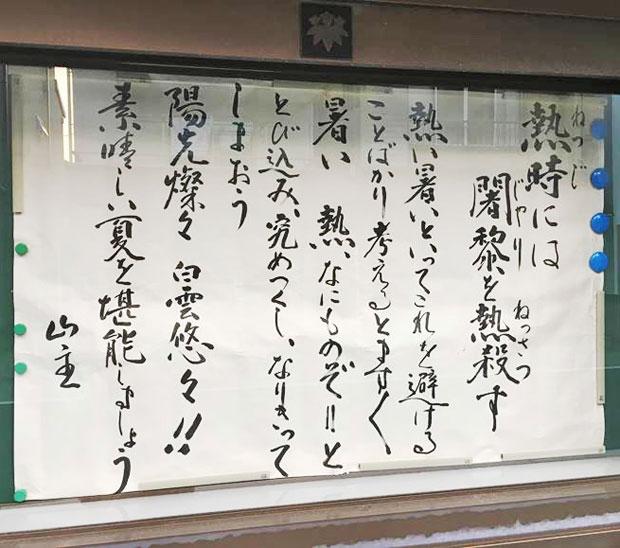 ねつじ
熱時には
じゃり ねっさつ
闍黎を熱殺す
熱い暑いといってこれを避ける
ことばかり考えるとます〱
暑い 熱、なにものぞ!!と
とび込み、究めつくし、なりきって
しまおう
陽光燦々 白雲悠々!!
素晴しい夏を堪能しましょう
山主